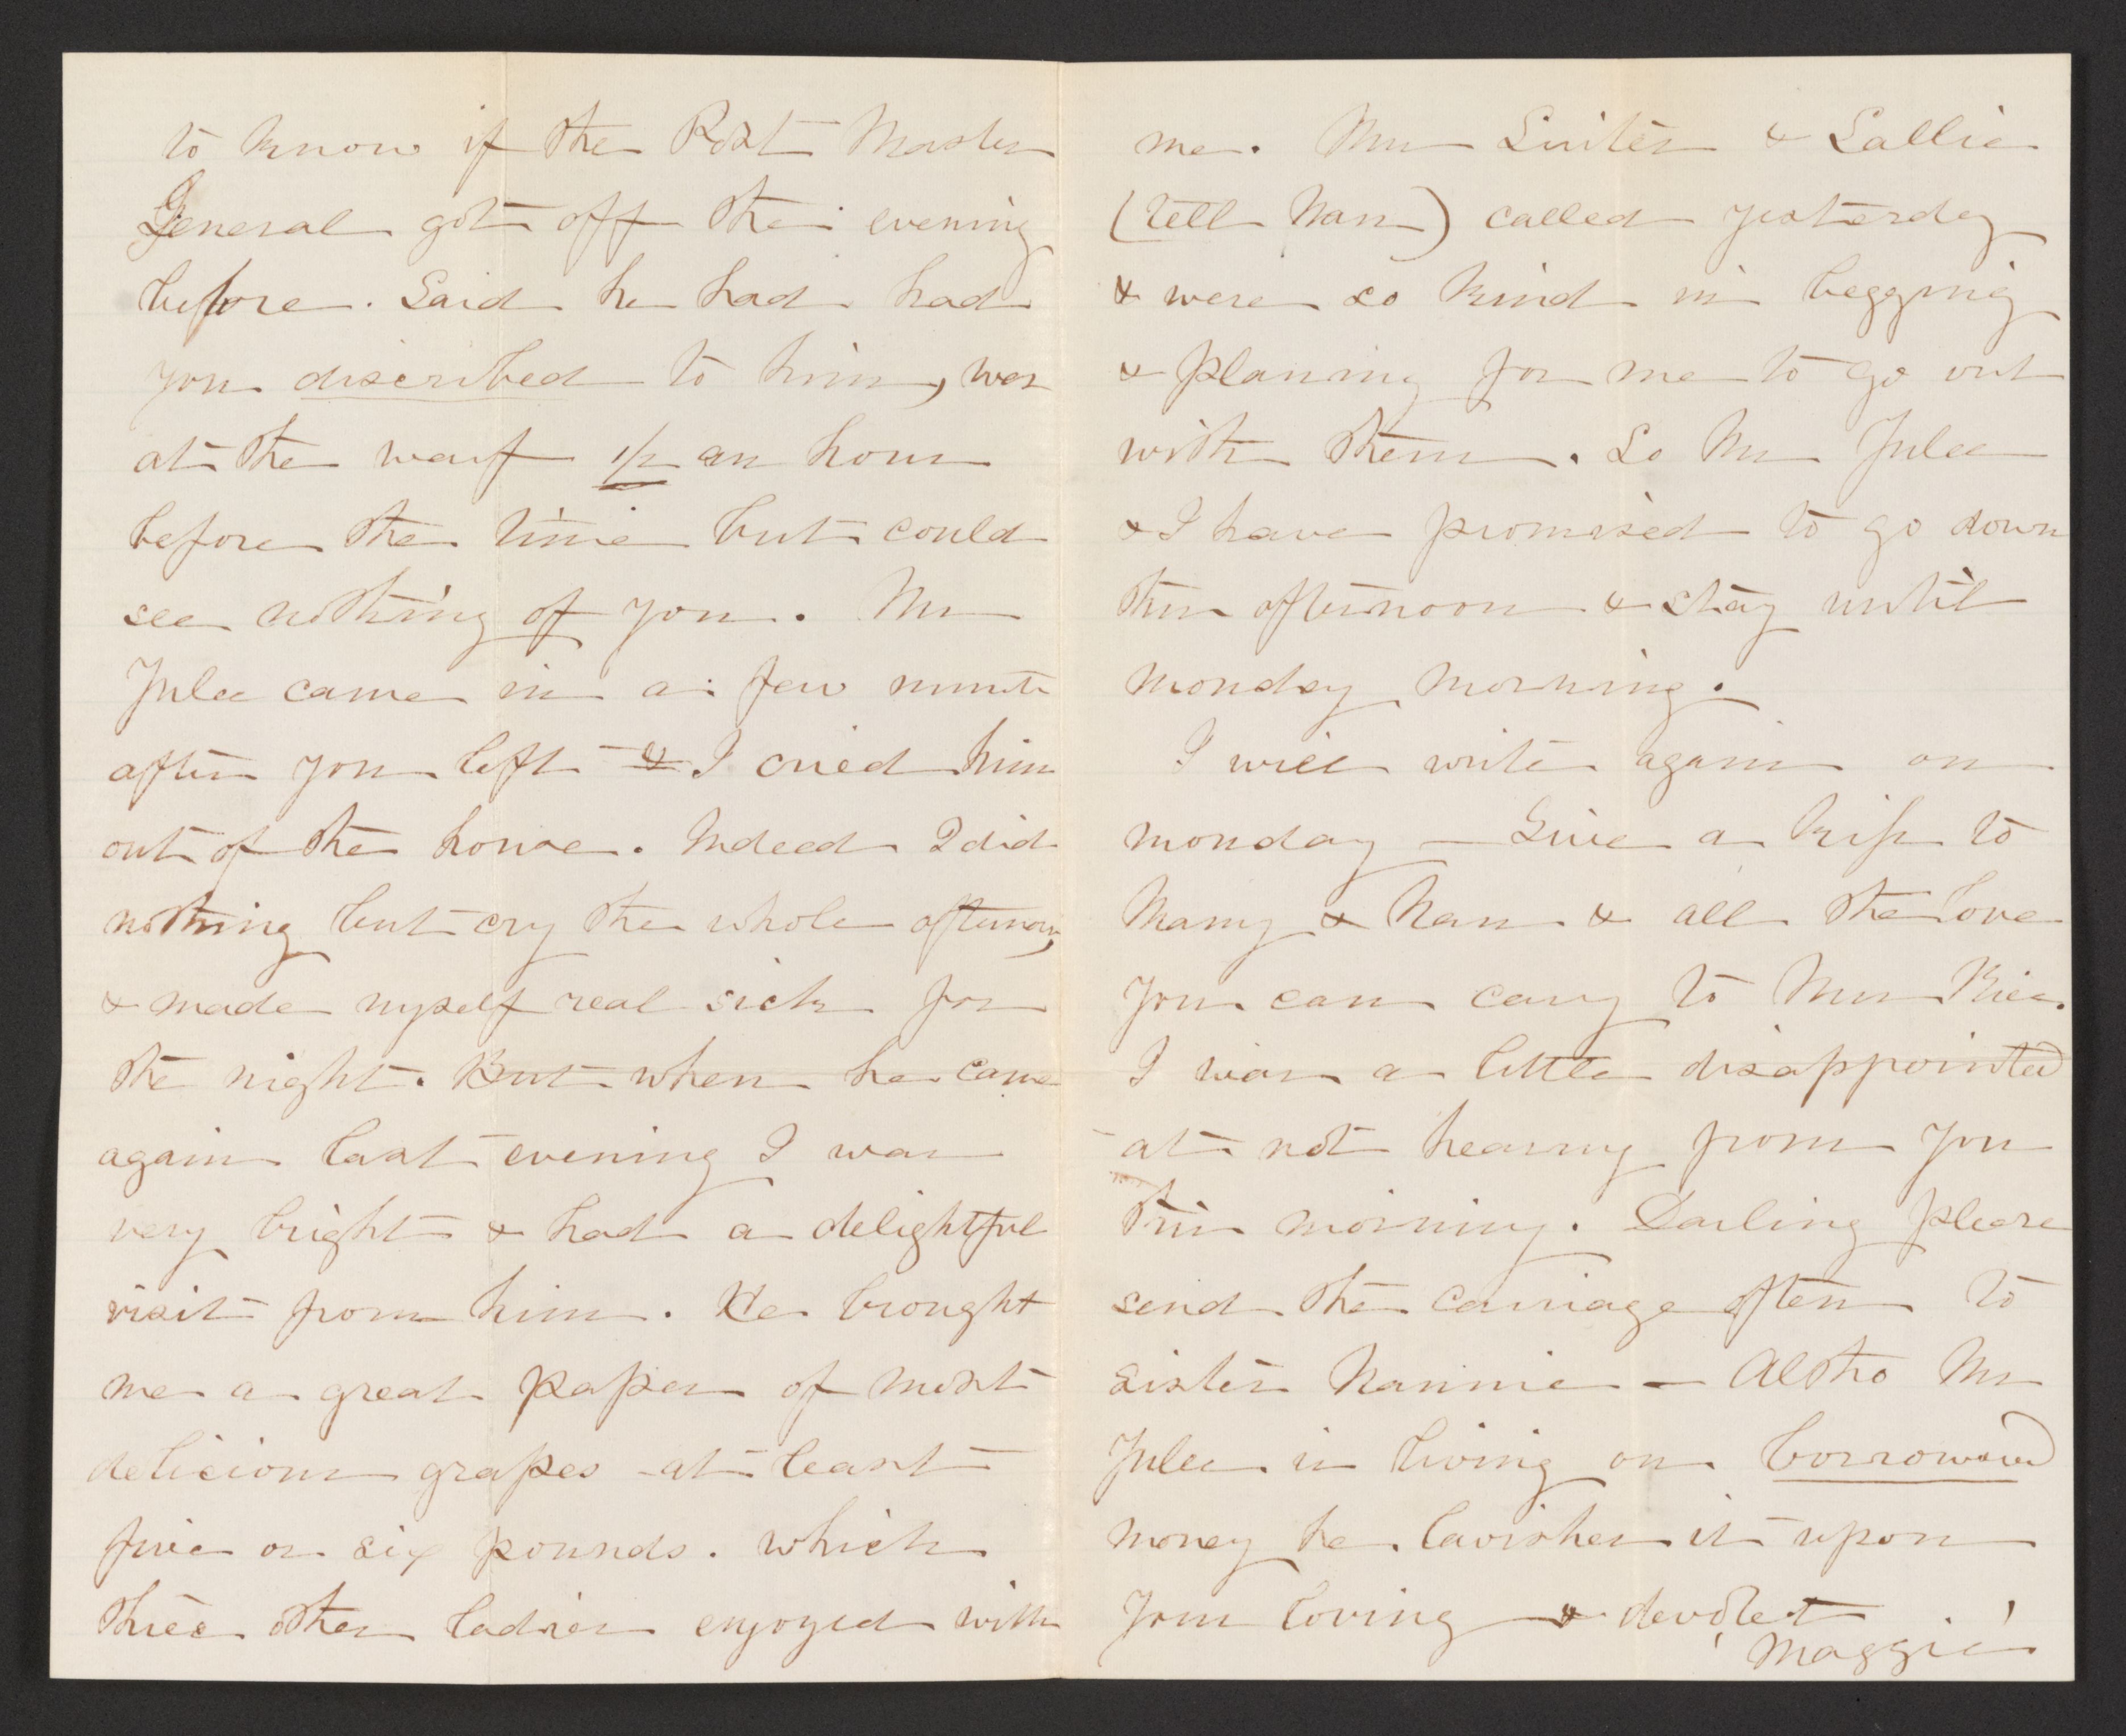 to know if the Post Master
General got off the evening
before. Said he had had
you discribed to him, was
at the warf 1/2 an hour
before the time but could
see nothing of you. Mr
Julee came in a few minute
after you left & I cried him
out of the house. Indeed I did
nothing but cry the whole afternoon,
& made myself real sick for
the night. But when he came
again last evening I was
very bright & had a delightful
visit from him. He brought
me a great paper of most
delicious grapes at least
five or six pounds. which
three other ladies enjoyed with
me. Mrs Suiter & Sallie
(tell Nan) called yesterday
& were so kind in begging
& planing for me to go out
with them. So Mr Julee
& I have promised to go down
this afternoon & stay until
Monday morning.
I will write again on
monday — Give a kiss to
Mamy & Nan & all the love
you can cary to Mrs Rice.
I was a little disappointed
at not hearing from you
this morning. Darling please
send the carriage often to
sister Nannie — Altho Mr
Julee is living on borrowed
money he lavishes it upon
Your loving & devotet
Maggie